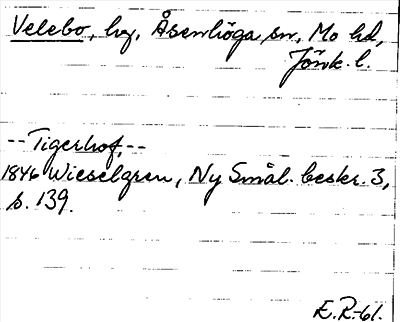 Velebo, hg, Åsenhöga sn, Mo hd,
Jönk. l.
-- Tigerhof, --
1846 Wieselgren, Ny Smål. beskr. 3,
s. 139.
E.R.-61.